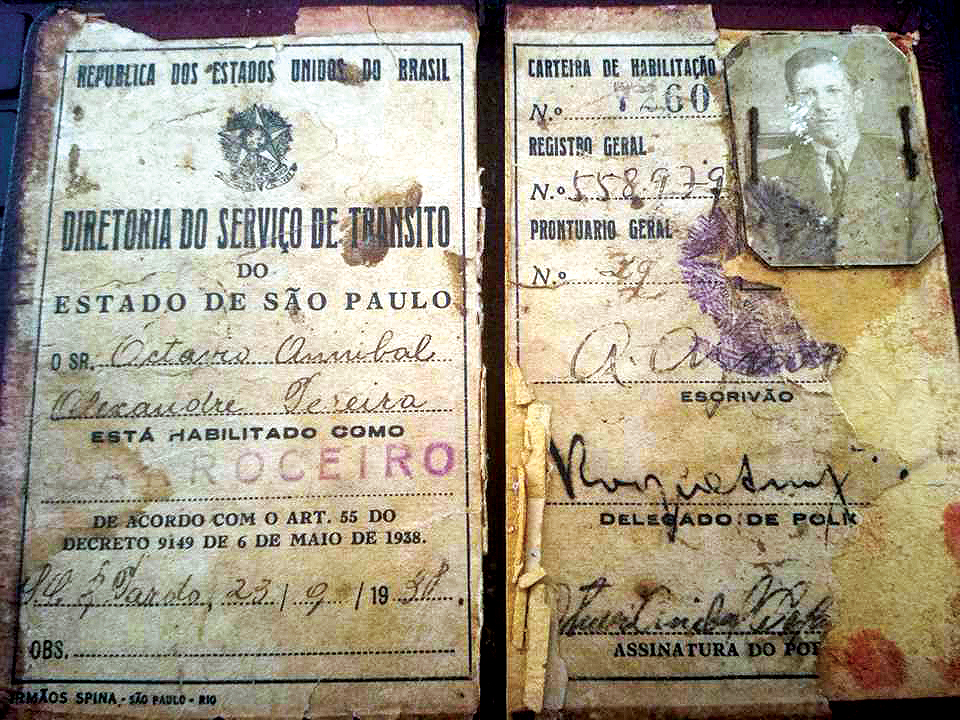 REPUBLICA DOS ESTADOS UNIDOS DO BRASIL
DIRETORIA DO SERVIÇO DE TRANSITO
DO
ESTADO DE SÃO PAULO
O SR. Octavio Annibal
Alexandre Pereira
ESTÁ HABILITADO COMO
CARROCEIRO
DE ACORDO COM O ART. 55 DO
DECRETO 9149 DE 6 DE MAIO DE 1938.
Pardo, 23/9/1938.
OBS.
IRMÃOS SPINA - SÃO PAULO - RIO
CARTEIRA DE HABILITAÇÃO
N.º 7260
REGISTRO GERAL
N.º 558.979
PRONTUARIO GERAL
N.º 79
ESCRIVÃO
DELEGADO DE POLI
ASSINATURA DO POR